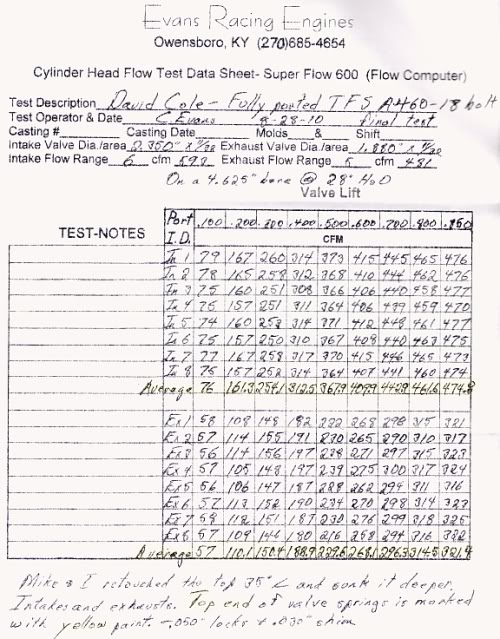 Evans Racing Engines
Owensboro, KY (270)685-4654
Cylinder Head Flow Test Data Sheet- Super Flow 600 (Flow Computer)
Test Description David Cole - Fully ported TFS A460-18 bolt
Test Operator & Date C Evans 8-28-10 final test
Casting # Casting Date Molds & Shift
Intake Valve Dia./area 2.350" x Exhaust Valve Dia./area 1.880" x
Intake Flow Range 6 cfm 598 Exhaust Flow Range 5 cfm 481
On a 4.625" bore @ 28" H2O
Valve Lift
TEST-NOTES Port I.D. .100 .200 .300 .400 .500 .600 .700 .800 .850
CFM
In 1 79 167 260 314 373 415 445 465 476
In 2 78 165 258 312 368 410 444 462 476
In 3 75 160 251 308 366 406 440 458 477
In 4 76 157 251 311 364 406 439 459 470
In 5 74 160 253 314 371 412 448 461 477
In 6 75 157 250 310 367 408 440 463 475
In 7 77 167 258 317 370 415 446 465 473
In 8 75 157 252 314 364 407 441 460 474
Average 76 161.3 254.1 312.5 367.9 409.9 442.9 461.6 474.8
Ex 1 58 108 148 182 222 268 298 315 321
Ex 2 57 114 155 191 230 265 290 310 317
Ex 3 56 114 156 197 238 271 297 315 323
Ex 4 57 105 148 197 239 275 300 317 324
Ex 5 56 106 147 187 228 262 294 311 316
Ex 6 57 113 152 190 234 270 298 314 323
Ex 7 58 112 151 187 230 276 299 318 325
Ex 8 57 109 146 180 216 258 294 316 322
Average 57 110.1 150.4 188.9 229.6 268.1 296.3 314.5 321.4
Mike & I retouched the top 35° < and sunk it deeper.
Intakes and exhausts. Top end of valve springs is marked
with yellow paint. -.050" locks + .030" shim